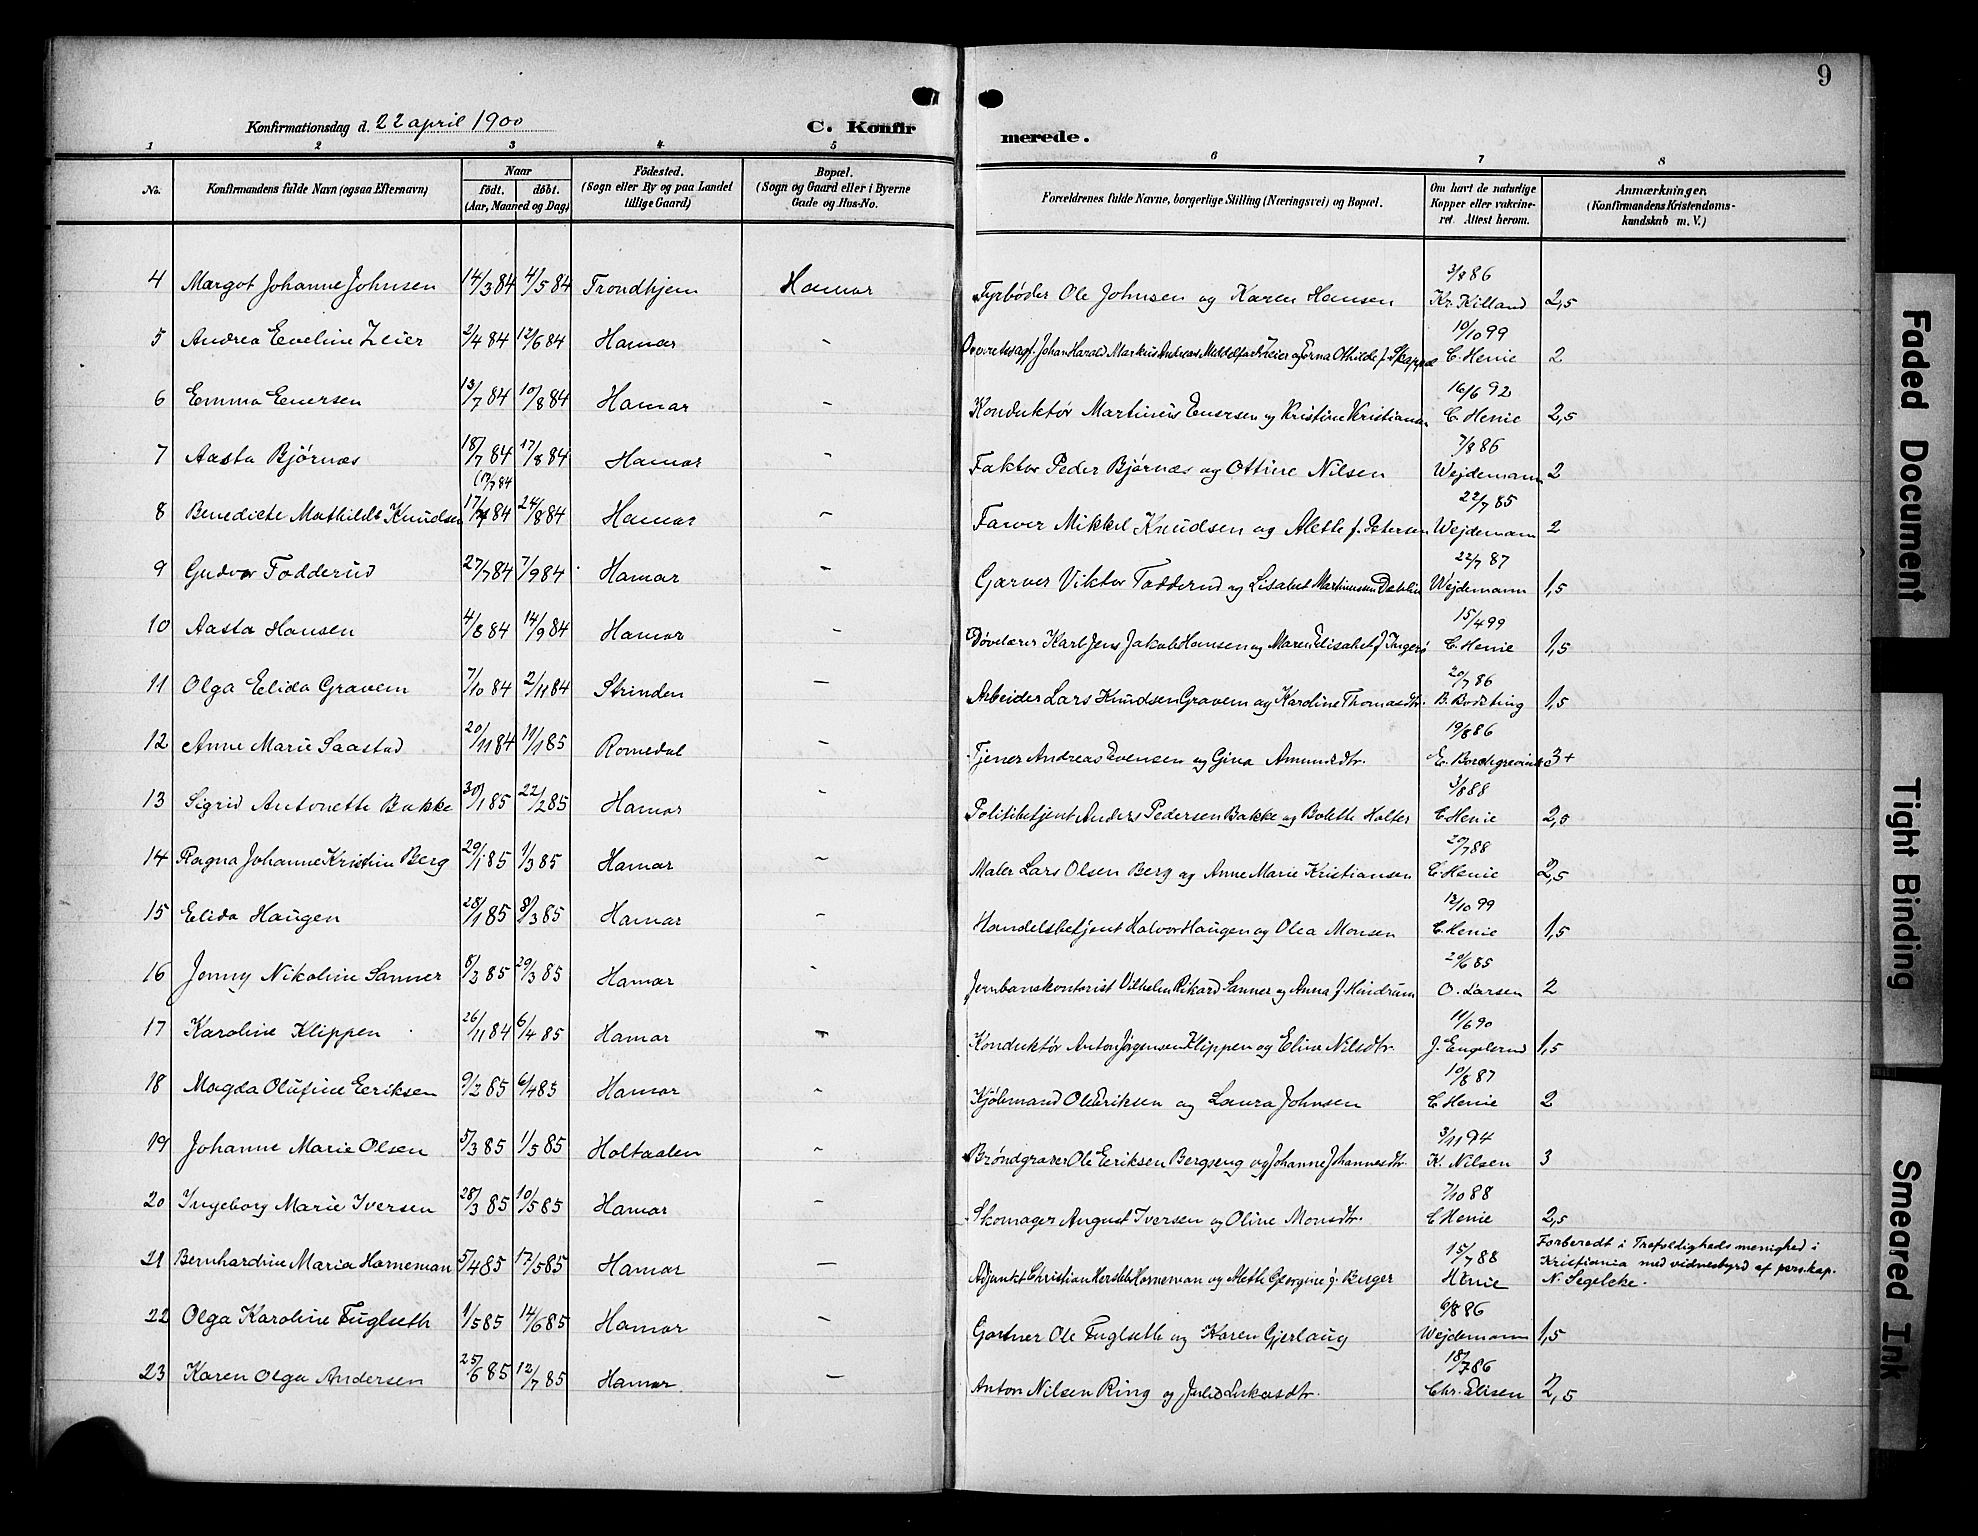 9
Konfirmationsdag d. 22 april 1900
C. Konfirmerede.
1 2 3 4 5 6 7 8
No.
Konfirmandens fulde Navn (ogsaa Efternavn)
Naar
født. døbt.
(Aar, Maaned og Dag)
Fødested.
(Sogn eller By og paa Landet
tillige Gaard)
Bopæl.
(Sogn og Gaard eller i Byerne
Gade og Hus-No.
Forældrenes fulde Navne, borgerlige Stilling (Næringsvei) og Bopæl.
Om havt de naturlige
Kopper eller vakcine-
ret. Attest herom.
Anmærkninger.
(Konfirmandens Kristendoms-
kundskab m. V.)
4 Margot Johanne Johnsen 14/3 84 4/5 84 Trondhjem Hamar Fyrbøder Ole Johnsen og Karen Hansen 3/8 86 Kr. Killand 2,5
5 Andrea Eveline Zeier 2/4 84 12/6 84 Hamar - Johan Harald Markus Andreas Zeier og Othilde f. 10/10 99 C. Henie 2
6 Emma Enersen 13/7 84 10/8 84 Hamar - Konduktør Martinius Enersen og Kristine Kristiansen 16/6 92 C Henie 2,5
7 Aasta Bjørnæs 18/7 84 17/8 84 Hamar - Faktor Peder Bjørnæs og Ottine Nilsen 7/8 86 Wejdemann 2
(17/7 84
8 Benedicte Mathilde Knudsen 17/7 84 24/8 84 Hamar - Farver Mikkel Knudsen og Alette f. Petersen 22/7 85 Wejdemann 2
9 Gudvor Fodderud 27/7 84 7/9 84 Hamar - Garver Viktor Fodderud og Lisabet Martinussen 22/7 87 Wejdemann 1,5
10 Aasta Hansen 4/8 84 14/9 84 Hamar - Døvelærer Karl Jens Jakob Hansen og Maren Elisabet f. 15/4 99 C. Henie 1,5
11 Olga Elida Gravem 7/10 84 2/11 84 Strinden - Arbeider Lars Knudsen Gravem og Karoline Thomasdtr. 20/7 86 1,5
12 Anne Marie Saastad 20/11 84 11/1 85 Romedal - Tjener Andreas Evensen og Gina Amundsdtr. 19/8 86 3+
13 Sigrid Antonette Bakke 30/1 85 22/2 85 Hamar - Politibetjent Anders Pedersen Bakke og Bolette Holter 3/8 88 C Henie 2,5
14 Ragna Johanne Kristine Berg 29/1 85 1/3 85 Hamar - Maler Lars Olsen Berg og Anne Marie Kristiansen 20/7 88 C. Henie 2,5
15 Elida Haugen 28/1 85 8/3 85 Hamar - Handelsbetjent Halvor Haugen og Olea Monsen 12/10 99 C. Henie 1,5
16 Jenny Nikoline Sanner 8/2 85 29/3 85 Hamar - Jernbanekontorist Vilhelm Rikard Sanner og Anna f. Hindrum 20/6 85 O. Larsen 2
17 Karoline Klippen 26/11 84 6/4 85 Hamar - Konduktør Anton Jørgensen Klippen og Eline Nilsdtr. 11/6 90 1,5
18 Magda Olufine Eriksen 9/2 85 6/4 85 Hamar - Kjøbmand Ole Eriksen og Laura Johnsen 10/8 87 C Henie 2
19 Johanne Marie Olsen 5/3 85 1/5 85 Holtaalen - Brøndgraver Ole Eriksen Bergseng og Johanne Johannesdtr. 3/11 94 K. Nilsen 3
20 Ingeborg Marie Iversen 28/3 85 10/5 85 Hamar - Skomager August Iversen og Oline Monsdtr. 7/10 88 C Henie 2,5
21 Bernhardine Maria Horneman 5/4 85 17/5 85 Hamar - Adjunkt Christian Horneman og Mette Georgine f. 15/7 88 Henie Forberedt i Trefoldigheds menighed i
Kristiania med vidnesbyrd af pers.kap.
N. Segelcke.
22 Olga Karoline Fuglseth 1/5 85 14/6 85 Hamar - Gartner Ole Fuglseth og Karen Gjerlaug 6/8 86 Wejdemann 1,5
23 Karen Olga Andersen 25/6 85 12/7 85 Hamar - Anton Nilsen Ring og Julia Lukasdtr. 18/7 86 Chr. Elisen 2,5
Faded Document
Tight Binding
Smeared Ink